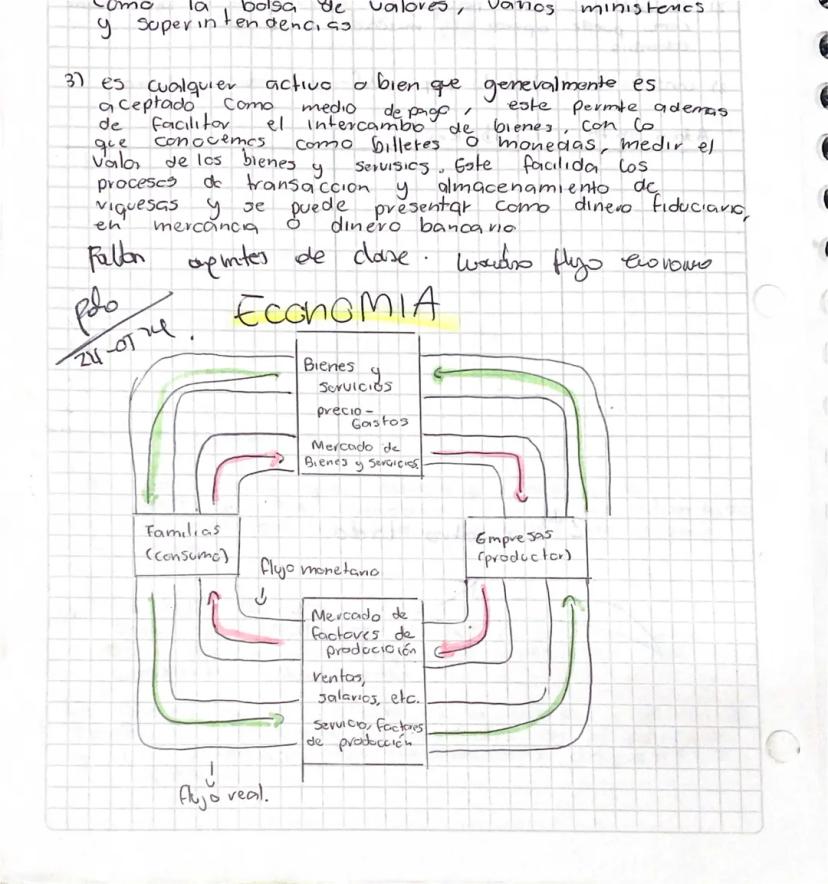 como la bolsa de valores, varios ministerios
y superintendencias
3) es cualquier activo o bien que generalmente es
aceptado como medio de pago, este permite ademas
de facilitar el intercambo de bienes, con lo
que conocemos como billetes o monedas, medir el
valor de los bienes y servisios. Este facilida los
procesos de transaccion y almacenamiento de
riquesas y se puede presentar como dinero fiduciario,
en mercancia o dinero bancario
Faltan apuntes de clase. flujo
24-07-24.
ECONOMIA
Bienes y
servicios
precio-
Gastos
Mercado de
Bienes y servicios
Familias
(consumo)
Empresas
(productor)
flujo monetario
Mercado de
factores de
producción
ventas,
salarios, etc.
servicio, factores
de producción
flujo real.